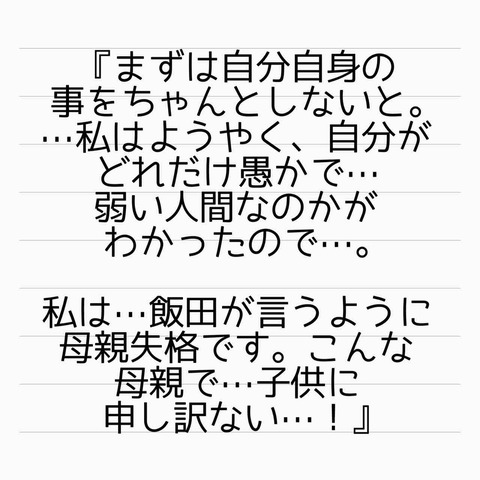 『まずは自分自身の
事をちゃんとしないと。
…私はようやく、自分が
どれだけ愚かで…
弱い人間なのかが
わかったので…。
私は…飯田が言うように
母親失格です。こんな
母親で…子供に
申し訳ない…！』